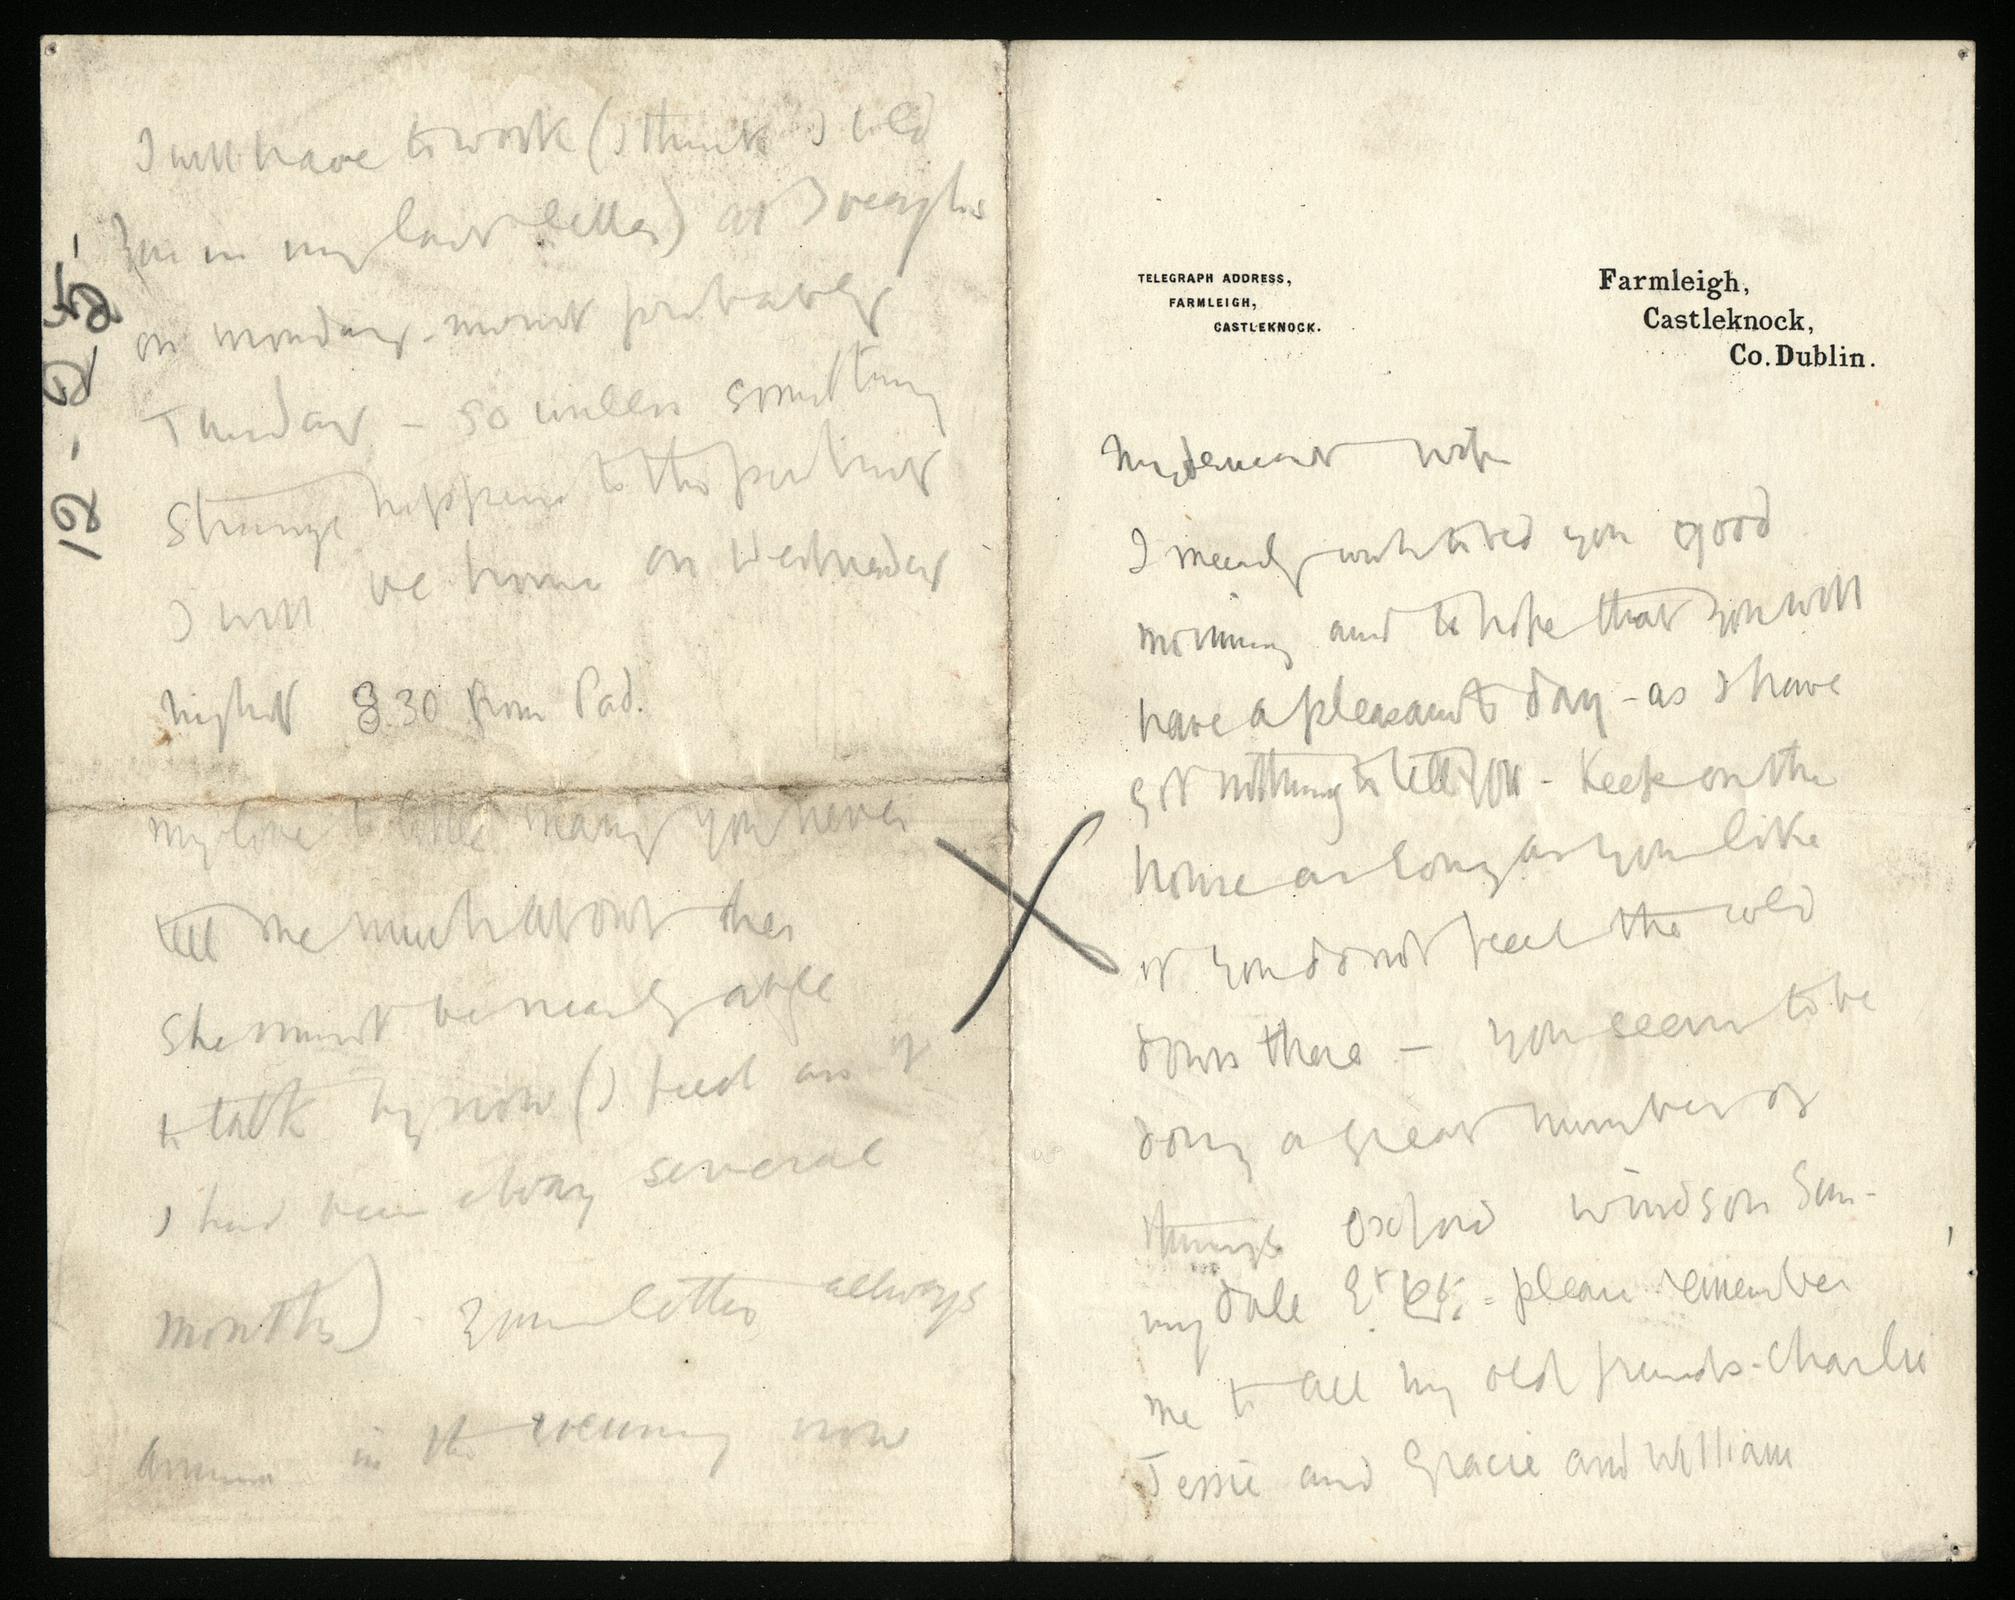 TELEGRAPH ADDRESS,
FARMLEIGH,
CASTLEKNOCK.
Farmleigh,
Castleknock,
Co. Dublin.
My dearest wife
I merely wish to bid you good
morning and to hope that you will
have a pleasant day - as I have
got nothing to tell you - Keep on the
house as long as you like
if you do not feel the cold
down there - you seem to be
doing a great number of
things Oxford Windsor Sun-
mydale &c &c. - please remember
me to all my old friends - Charlie
Jessie and Gracie and William
I will have to work (I think I told
you in my last letter) at
on Monday - most probably
Tuesday - so unless something
strange happens to the
I will be home on Wednesday
night 8.30 from Pad.
my love to little mary you never
tell me much about her
She must be nearly able
to talk by now (I feel as if
I had been away several
months) - your letter allways
in the evening now